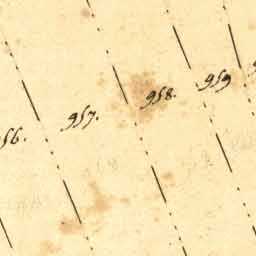 957.
958.
959